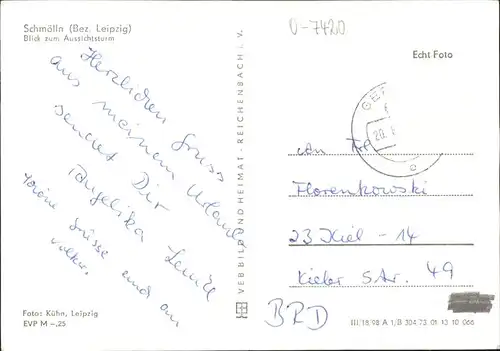 Schmölln (Bez. Leipzig)
Blick zum Aussichtsturm
0-7420
Echt Foto
Herzlichen Gruss
aus meinem Urlaub
sendet Dir
Angelika
schöne Grüsse und an
Volker.
VEB BILD UND HEIMAT · REICHENBACH i. V.
An
Florenkowski
23 Kiel - 14
Kieler Str. 49
BRD
Foto: Kühn, Leipzig
EVP M –,25
III/18/98 A 1/B 304 73 01 13 10 066